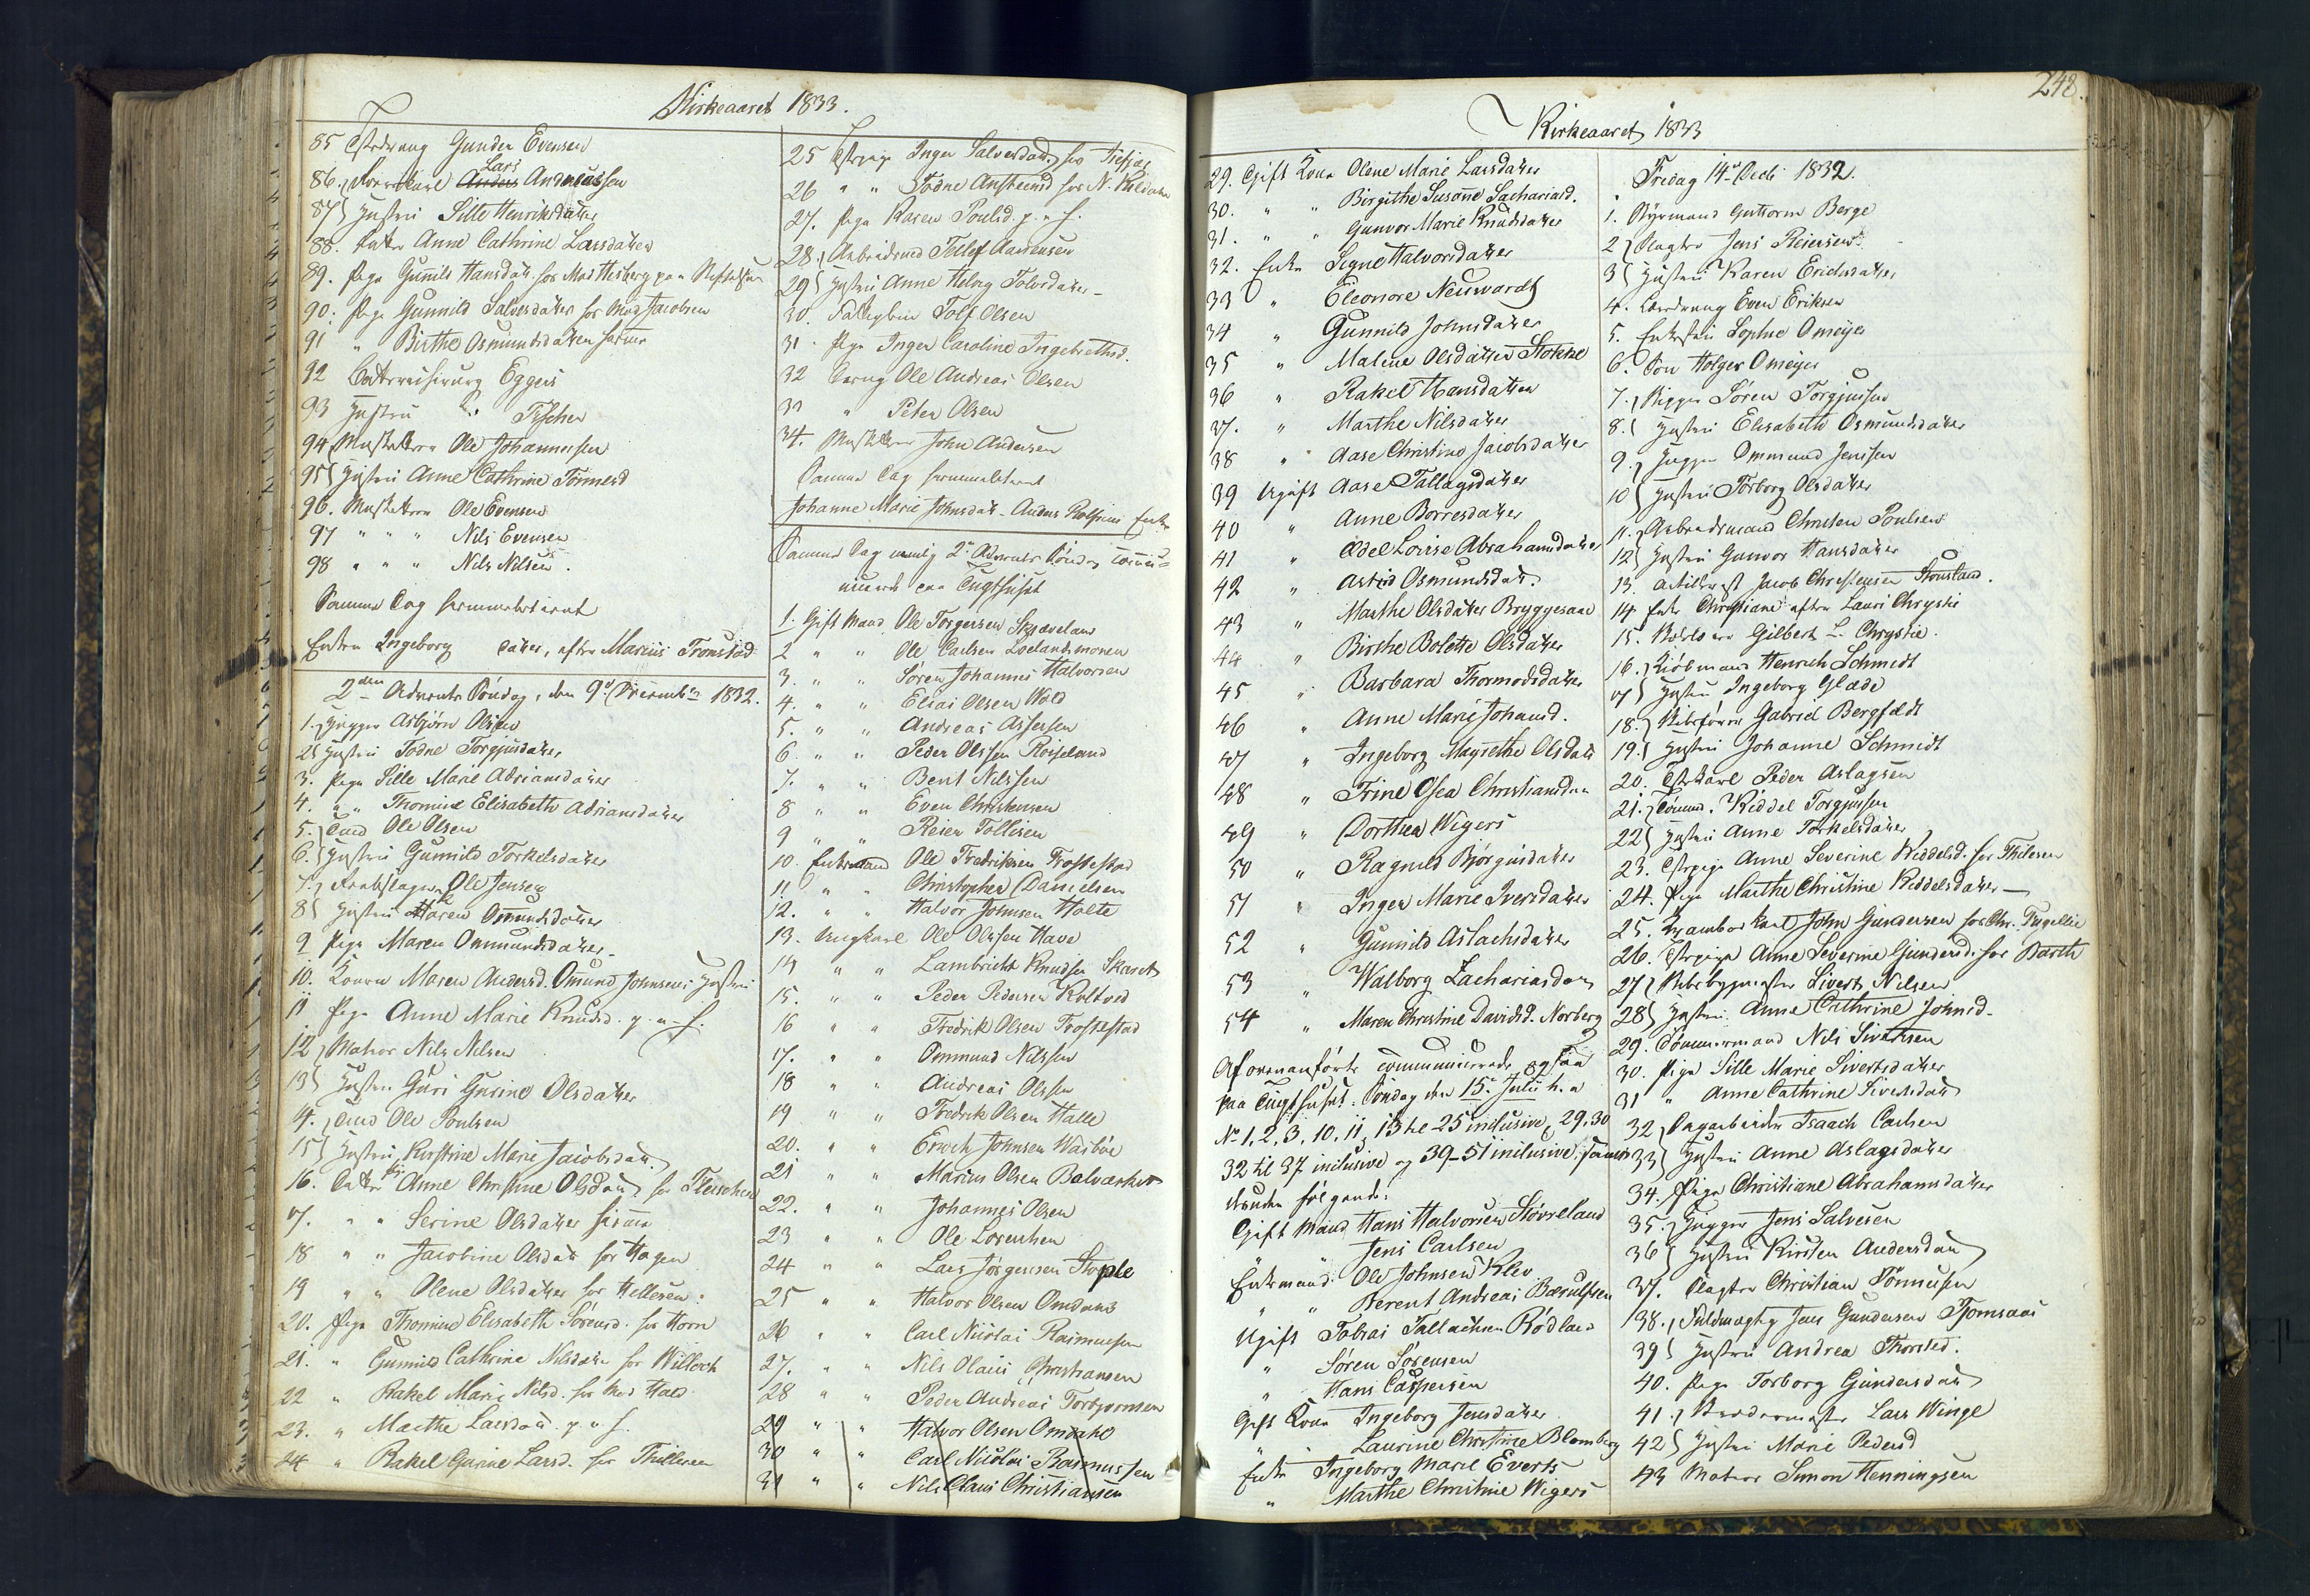 Kirkeaaret 1833.
85 Gunder Evensen
86. Lars Anders Andreassen
87 Hustru Sille Henriksdatter
88. Anne Cathrine Larsdatter
89. Pige Gunnild Hansdatr. for Mad Hesberg paa
90. Pige Gunnild Salvesdatter for Mad Jacobsen
91 " Birthe Osmundsdatter
92 Eggers
93 Hustru Fischer
94 Musketeer Ole Johannessen
95 Hustru Anne Cathrine
96. Musketeer Ole Evensen
97 " " " Nils Evensen
98 " " " Nils Nilsen.
Samme Dag
Enken Ingeborg datter, efter Marius Tronstad
2den Advents Søndag, den 9de Decembr 1832.
1. Asbjørn Olsen
2 Hustru Todne Torgjusdatter
3. Pige Sille Marie Adriansdatter
4. " " Thomine Elisabeth Adriansdatter
5. Ole Olsen
6. Hustru Gunnild Torkelsdatter
7. Ole Jensen
8 Hustru Karen Omundsdatter
9 Pige Maren Ommundsdatter
10. Konen Maren Andersd. Omund Johnsens Hustru
11 Pige Anne Marie Knudsd. p. a. f.
12 Matros Nils Nilsen
13 Hustru Guri Gurine Olsdatter
14. Ole Poulsen
15 Hustru Kirstine Marie Jacobsdatr.
16. Anne Christine Olsdatr for Fleischer
17. " " Serine Olsdatter
18 " " Jacobine Olsdatr for Hagen
19 " " Olene Olsdatter for Hellesen
20. Pige Thomine Elisabeth Sörensd. for Horn
21. " Gunnild Cathrine Nilsdatter for Willoch
22 " Rakel Marie Nilsd. for Mad Hald
23. " Marthe Larsdatr. p. a. f.
24 " Rakel Gurine Larsd. for Thillesen
25 Inger Salvesdatr for
26 " " Todne for N.
27. Pige Karen Poulsd. p. a. f.
28. Tellef Aanensen
29 Hustru Anne Helvig Tolvsdatter
30. Tolf Olsen
31. Pige Inger Caroline Ingebrethsd.
32 Dreng Ole Andreas Olsen
33 " Peter Olsen
34. Musketeer John Andersen
Samme Dag
Johanne Marie Johnsdatr. Anders Enke
Samme Dag nemlig 2n Advents Søndag
paa Tugthuset
1. Gift Mand Ole Torgersen
2 " " Ole Carlsen
3. " " Søren Johannes Halvorsen
4. " " Elias Olsen Wold
5. " " Andreas Assersen
6 " " Peder Olsen Roiseland
7. " " Bent Nilssen
8 " " Even Christensen
9 " " Reier Tollisen
10. Enkemand Ole Fredriksen Trostestad
11 " " Christopher Danielsen
12. " " Halvor Johnsen Holte
13. Ungkarl Ole Olsen Have
14 " " Lambricht Knudsen
15. " " Peder Pedersen
16 " " Fredrik Olsen Trostestad
17. " " Ommund Nilssen
18 " " Andreas Olsen
19 " " Fredrik Olsen Halle
20. " " Enoch Johnsen
21 " " Marius Olsen
22. " " Johannes Olsen
23 " " Ole Lorentsen
24 " " Lars Jørgensen Stople
25 " " Halvor Olsen Omdahl
26 " " Carl Nicolai Rasmussen
27. " " Nils Olaus Christiansen
28 " " Peder Andreas Torbjornsen
29 " " Halvor Olsen Omdahl
30 " " Carl Nicolai Rasmussen
31 " " Nils Claus Christiansen
248.
Kirkeaaret 1833
29. Gift Kone Olene Marie Larsdatter
30. " " Birgithe Susanne Sachariasd.
31. " " Gunvor Marie Knudsdatter
32. Enke Signe Halvorsdatter
33 " Eleonore Neuwardt
34 " Gunnild Johnsdatter
35 " Malene Olsdatter Stokke
36 " Rakel Hansdatter
37. " Marthe Nilsdatter
38 " Aase Christine Jacobsdatter
39 Ugift Aase Tallagsdatter
40 " Anne Borresdatter
41 " Edel Lovise Abrahamsdatter
42 " Astrid Osmundsdatr.
43 " Marthe Olsdatter Bryggesaae
44 " Birthe Bolette Olsdatter
45 " Barbara Thormodsdatter
46 " Anne Marie Johansd.
47 " Ingeborg Magrethe Olsdatr
48 " Trine Osea Christiansdr
49 " Dorthea Wigers
50 " Ragnild Bjørgusdatter
51 " Inger Marie Iversdatter
52 " Gunnild Aslachsdatter
53 " Walborg Zachariasdatr
54 " Maren Christine Davidsd. Norberg
Af ovenanførte communicerede ogsaa
paa Tugthuset Søndag den 15de Julii h. a
No 1, 2, 3, 10, 11, 13 til 25 inclusive, 29, 30
32 til 37 inclusive og 39-51 inclusive, samt
desuden følgende:
Gift Mand Hans Halvorsen Støvreland
" " Jens Carlsen
Enkemand Ole Johnsen Klev
" " Berent Andreas
Ugift Tobias Tallachsen
" Søren Sørensen
" Hans Caspersen
Gift Kone Ingeborg Jensdatter
" " Laurine Christine Blomberg
Enke Ingeborg Marie Everts
" Marthe Christine Wigers
Fredag 14de Decbr 1832.
1. Styrmand Guttorm Berge
2 Jens Reiersen
3 Hustru Karen Erichsdatter
4. Even Eriksen
5. Sophie Omeyer
6. Søn Holger Omeyer
7. Rigger Søren Torgjussen
8. Hustru Elisabeth Osmundsdatter
9. Ommund Jenssen
10 Hustru Torborg Olsdatter
11. Arbeidsmand Christen Poulsen
12 Hustru Gunvor Hansdatter
13. Jacob Christensen
14 Enke Christiane efter Lauri Chrystie
15. Gilbert L. Chrystie.
16. Kiøbmand Henrich Schmidt
17 Hustru Ingeborg Glade
18. Gabriel Bergfeldt
19. Hustru Johanne Schmidt
20. Peder Aslagsen
21. Kiddel Torgjussen
22 Hustru Anne Torkelsdatter
23. Anne Severine Kiddelsd. for Thilesen
24. Pige Marthe Christine Kiddelsdatter
25. John Gundersen for Chr.
26. Anne Severine Gundersd. for Barth
27 Sivert Nilsen
28 Hustru Anne Cathrine Johnsd.
29. Tømmermand Nils Sivertsen
30. Pige Sille Marie Sivertsdatter
31 " Anne Cathrine Sivertsdatr
32 Dagarbeider Isaach Carlsen
33 Hustru Anne Aslagsdatter
34. Pige Christiane Abrahamsdatter
35. Jens Salvesen
36 Hustru Kirsten Andersdatr
37. Christian Tønnesen
38. Jens Gundersen Tjomsaas
39 Hustru Andrea Thorsted.
40. Pige Torborg Gundersdatr
41. Lars Winge
42 Hustru Marie Pedersd
43 Matros Simon Henningsen